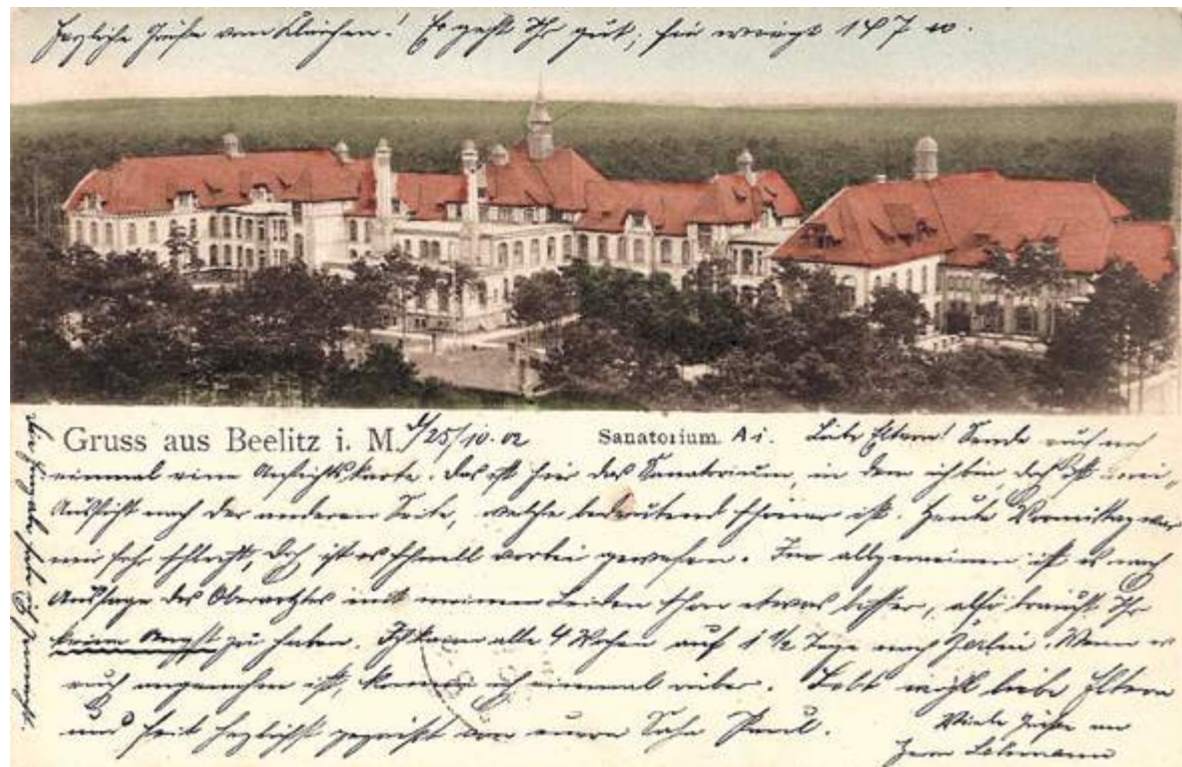 Herzliche Grüße von Klärchen! Es geht Ihr gut; sie wiegt 147 .
Gruss aus Beelitz i. M. d/25/10.02 Sanatorium A i. Liebe Eltern! Sende euch noch
einmal eine Ansichtskarte. Das ist hier das Sanatorium, in dem ich bin, doch ist
Aussicht nach der anderen Seite, welche bedeutend schöner ist. Heute Vormittag war
mir sehr schlecht, doch ist es schnell vorbei gewesen. Im allgemeinen ist es nach
Aussage des Oberarztes mit meinem Leiden schon etwas besser, also braucht Ihr
keine Angst zu haben. Ich kann alle 4 Wochen auf 1 1/2 Tage nach Berlin. Wenn es
euch angenehm ist, komme ich einmal rüber. Lebt wohl liebe Eltern
und seid herzlichst gegrüßt von eurem Sohn Paul.
Viele Grüße an
Herrn Lohmann